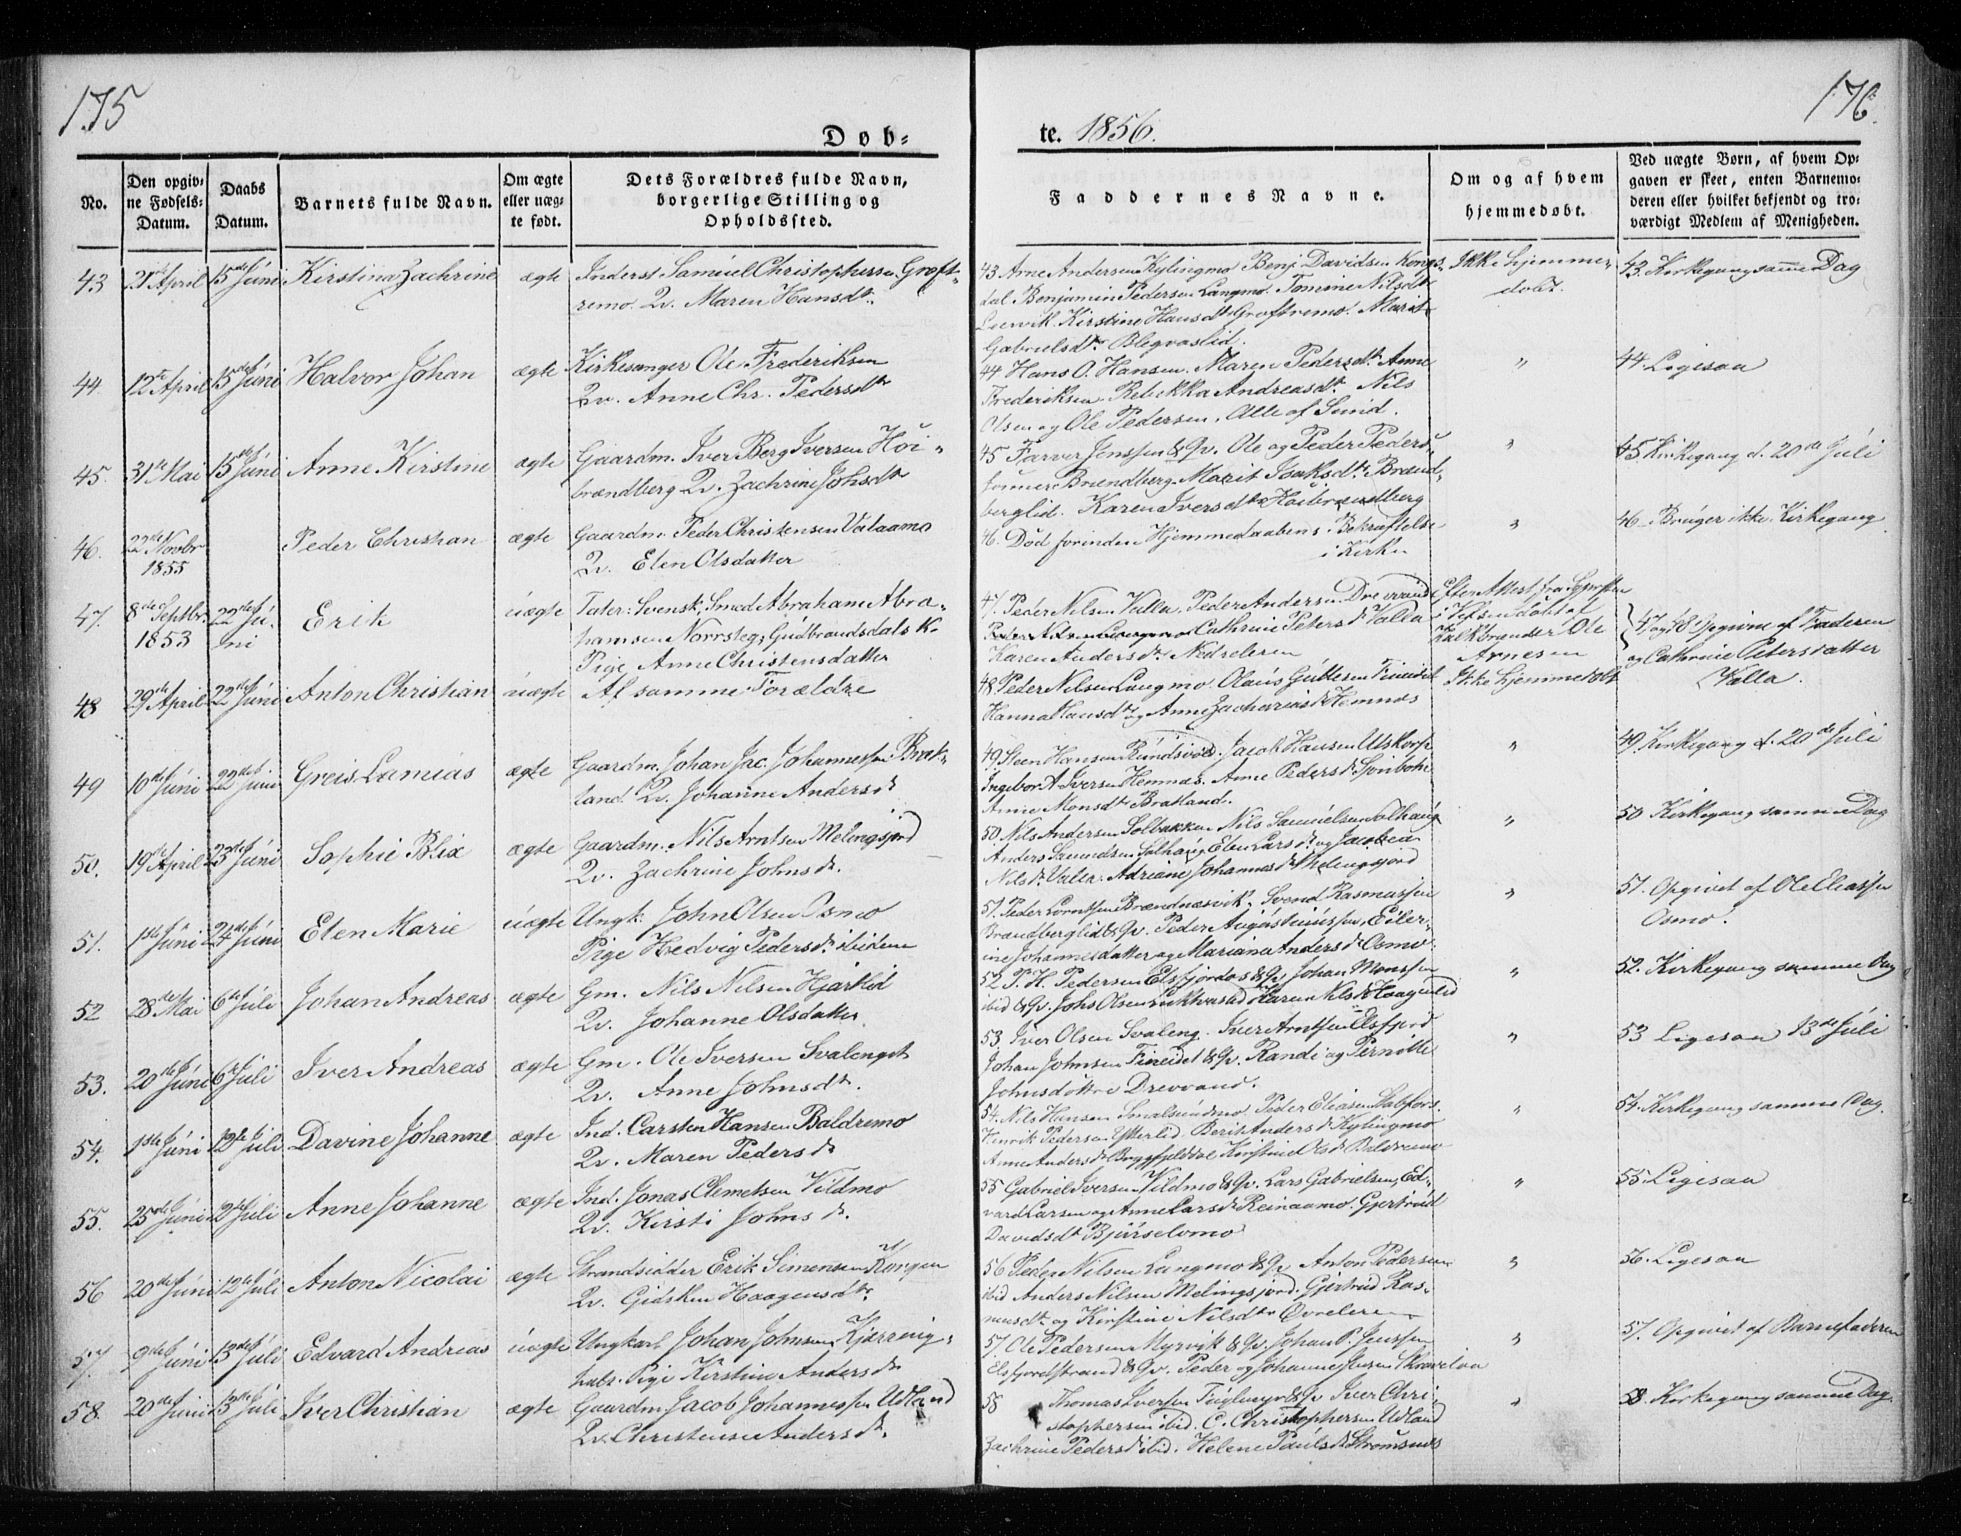 175
176.
Døb=
te. 1856.
No.
Den opgiv=
ne Fødsels=
Datum.
Daabs
Datum.
Barnets fulde Navn.
Om ægte
eller uæg=
te født.
Dets Forældres fulde Navn,
borgerlige Stilling og
Opholdssted.
Faddernes Navne.
Om og af hvem
hjemmedøbt.
Ved uægte Børn, af hvem Op=
gaven er skeet, enten Barnemo=
deren eller hvilket bekjendt og tro=
værdigt Medlem af Menigheden.
43 21de April 15de Juni Kirstina Zachrine ægte Inderst Samuel Christophersen Grøft-
remo. Qv. Maren Hansdtr.
43 Arne Andersen Kylingmo Benj. Davidsen Kongs-
dal Benjamin Pedersen Langmo. Tomine Nilsdtr
Leervik. Kirstine Hansdtr Grøftremo. Marit
Gabrielsdtr Blegvaslid.
Ikke hjemme-
døbt.
43. Kirkegang samme Dag
44. 12te April 15de Juni Halvor Johan ægte Kirkesanger Ole Frederiksen
Qv. Anne Chr. Pedersdtr
44 Hans O. Hansen. Maren Pedersdtr Anne
Frederiksen. Rebekka Andreasdtr. Nils
Olsen og Ole Pedersen. Alle af Sund.
"
44. Ligesaa
45. 31te Mai 15de Juni Anne Kirstine ægte Gaardm. Iver Berg Iversen Høi-
brændberg Qv. Zachrine Johsdtr
45 Farver Jenssen & Qv. Ole og Peder Peders-
sønner Brændberg. Marit Isaksdtr Brænd-
berglid. Karen Iversdtr Høibrændberg
"
45 Kirkegang d. 20de Juli
46. 22de Novbr
1855
Peder Christian ægte Gaardm. Peder Christensen Valaamo
Qv. Elen Olsdatter
46. Død forinden Hjemmedaabens Bekræftelse
i Kirken
"
46. Bruger ikke Kirkegang.
47. 8de Septbr.
1853
22de Ju-
ni
Erik uægte Tater: Svensk, Smed Abraham Abra-
hamsen Norrsteg; Gudbrandsdalsk.
Pige Anne Christensdatter
47. Peder Nilsen Valla. Peder Andersen Drevvand
Cathrine Petersd. Valla
Karen Andersdtr. Nedreleren
Efter Attest fra
i Vefsen døbt af
Ole
Arnesen
47 og 48 Opgivne af Faderen
og Cathrine Petersdatter
Valla.
48 29de April 22de Juni Anton Christian uægte Af samme Forældre
48 Peder Nilsen Langmo. Olaus Guttesen Fineidet
Hanna Hansdtr og Anne Zachariasd. Hemnes
Ikke hjemmedøbt
49 10de Juni 22de Juni Greis Lamias ægte Gaardm. Johan Jac. Johannessen Brat-
land. Qv. Johanne Andersd.
49 Steen Hansen Bundsvoe. Jacob Hansen Utskarp
Ingebor A. Iversen Hemnæs. Anne Pedersd.
Anne Monsdtr. Bratland.
"
49. Kirkegang d. 20de Juli
50. 19de April 23de Juni Sophie Blix ægte Gaardm. Nils Arntsen Melingsjord
Qv. Zachrine Johnsd.
50. Nils Andersen Solbakken Nils Samuelsen Solhaug
Anders Samuelsen Solhaug Elen Larsd. og Jacobea
Nilsd. Valla. Adriane Johannesd. Melingsjord
"
50 Kirkegang samme Dag
51. 1ste Juni 24de Juni Elen Marie uægte Ungk. John Olsen Osmo
Pige Hedvig Pedersd. ibidem
51. Peder Lorntsen Brændnæsvik. Svend Rasmussen
Brændberglid & Qv. Peder Augustinussen, Eiler-
ine Johannesdatter og Mariana Andersd. Osmo.
"
51. Opgivet af Ole Eliassen
Osmo.
52 28de Mai 6te Juli Johan Andreas ægte Gm. Nils Nilsen Hjartlid
Qv. Johanne Olsdatter.
52 P. H. Pedersen Elsfjordøs & Qv Johan Monssen
ibid & Qv. Johs Olsen Lukkvaslid Karen Nilsd.
"
52. Kirkegang samme Dag
53. 20de Juni 6te Juli Iver Andreas ægte Gm. Ole Iversen Svalenget
Qv. Anne Johnsdtr.
53. Iver Olsen Svaleng. Iver Arntsen Elsfjord
Johan Johnsen Fineidet & Qv. Randi og Pernille
Johnsdøttre Drevvand.
"
53 Ligesaa 13de Juli
54. 1ste Juni 12te Juli Davine Johanne ægte Ind. Carsten Hansen Baldremo
Qv. Maren Pedersd.
54. Nils Hansen Smalsundmo Peder Eliasen Stabfors.
Henrik Pedersen Ytterlid. Berit Andersd. Kylingmo
Anne Andersd. Bryggfjelddal Kirstine Olsd. Baldremo
"
54. Kirkegang samme Dag.
55. 25de Juni 12te Juli Anne Johanne ægte Ind. Jonas Clemetsen Vildmo
Qv. Kirsti Johnsd.
55 Gabriel Iversen Vildmo & Qv. Lars Gabrielsen, Ed-
vard Larsen og Anne Larsd. Reinaamo. Gjertrud
Davidsdtr Bjurselvmo
"
55. Ligesaa
56 20de Juni 12te Juli Anton Nicolai ægte Strandsidder Erik Simensen Kongen
Qv. Gidsken Haagensdtr.
56 Peder Nilsen Langmo & Qv Anton Pedersen
ibid Anders Nilsen Melingsjord. Gjertrud Ras-
musdtr. og Kirstine Nilsdtr Øvreleren
"
56. Ligesaa
57. 9de Juni 13de Juli Edvard Andreas uægte Ungkarl Johan Johnsen Kjærring-
hals. Pige Kirstine Andersd.
57. Ole Pedersen Myrvik & Qv. Johan P. Jenssen
Elsfjordstrand & Qv. Peder og Johanne Jensen
"
57. Opgivet af Barnefaderen
58 20de Juni 13de Juli Iver Christian ægte Gaardm. Jacob Johannessen Udland
Qv. Christense Andersd.
58 Thomas Iversen Fuglmyr & Qv Iver Chri-
stophersen ibid. C. Christophersen Udland
Zachrine Pedersd. ibid. Helene Paulsd. Strømsnes
"
58. Kirkegang samme Dag.